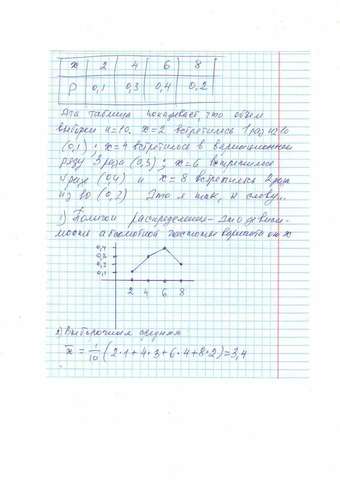 x 2 4 6 8
P 0,1 0,3 0,4 0,2
Эта таблица показывает, что объем
выборки n=10. x=2 встретилось 1 раз из 10
(0,1); x=4 встретилось в вариационном
ряду 3 раза (0,3); x=6 встретилось
4 раза (0,4) и x=8 встретилось 2 раза
из 10 (0,2) Это я так, к слову..
1) Полигон распределения - это зависи-
мость абсолютной частоты варианта от x
0,4
0,3
0,2
0,1
2 4 6 8
2) Выборочная средняя
x̅ = 1/10 (2·1+4·3+6·4+8·2)=3,4